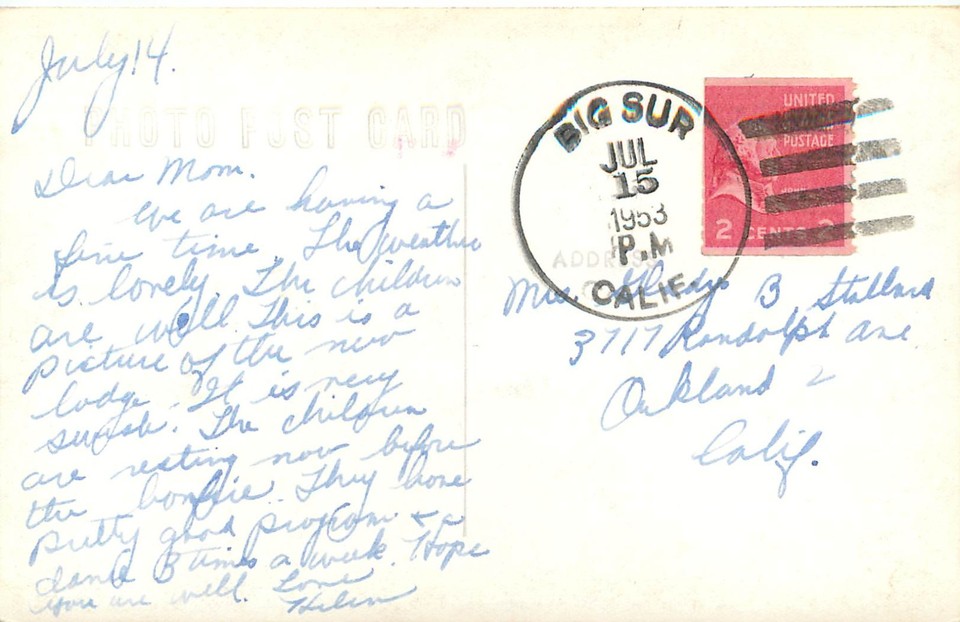 July 14.
PHOTO POST CARD
Dear Mom.
We are having a
fine time. The weather
is lovely. The children
are well This is a
picture of the new
lodge. It is very
swish. The children
are resting now before
the bonfire. They have
pretty good program & a
dance 3 times a week. Hope
you are well. Love
Helen
BIG SUR
JUL
15
1953
P.M
CALIF.
UNITED
POSTAGE
2 CENTS 2
ADDRESS
Mrs. Gladys B Stallard
3717 Randolph Ave.
Oakland 2
Calif.